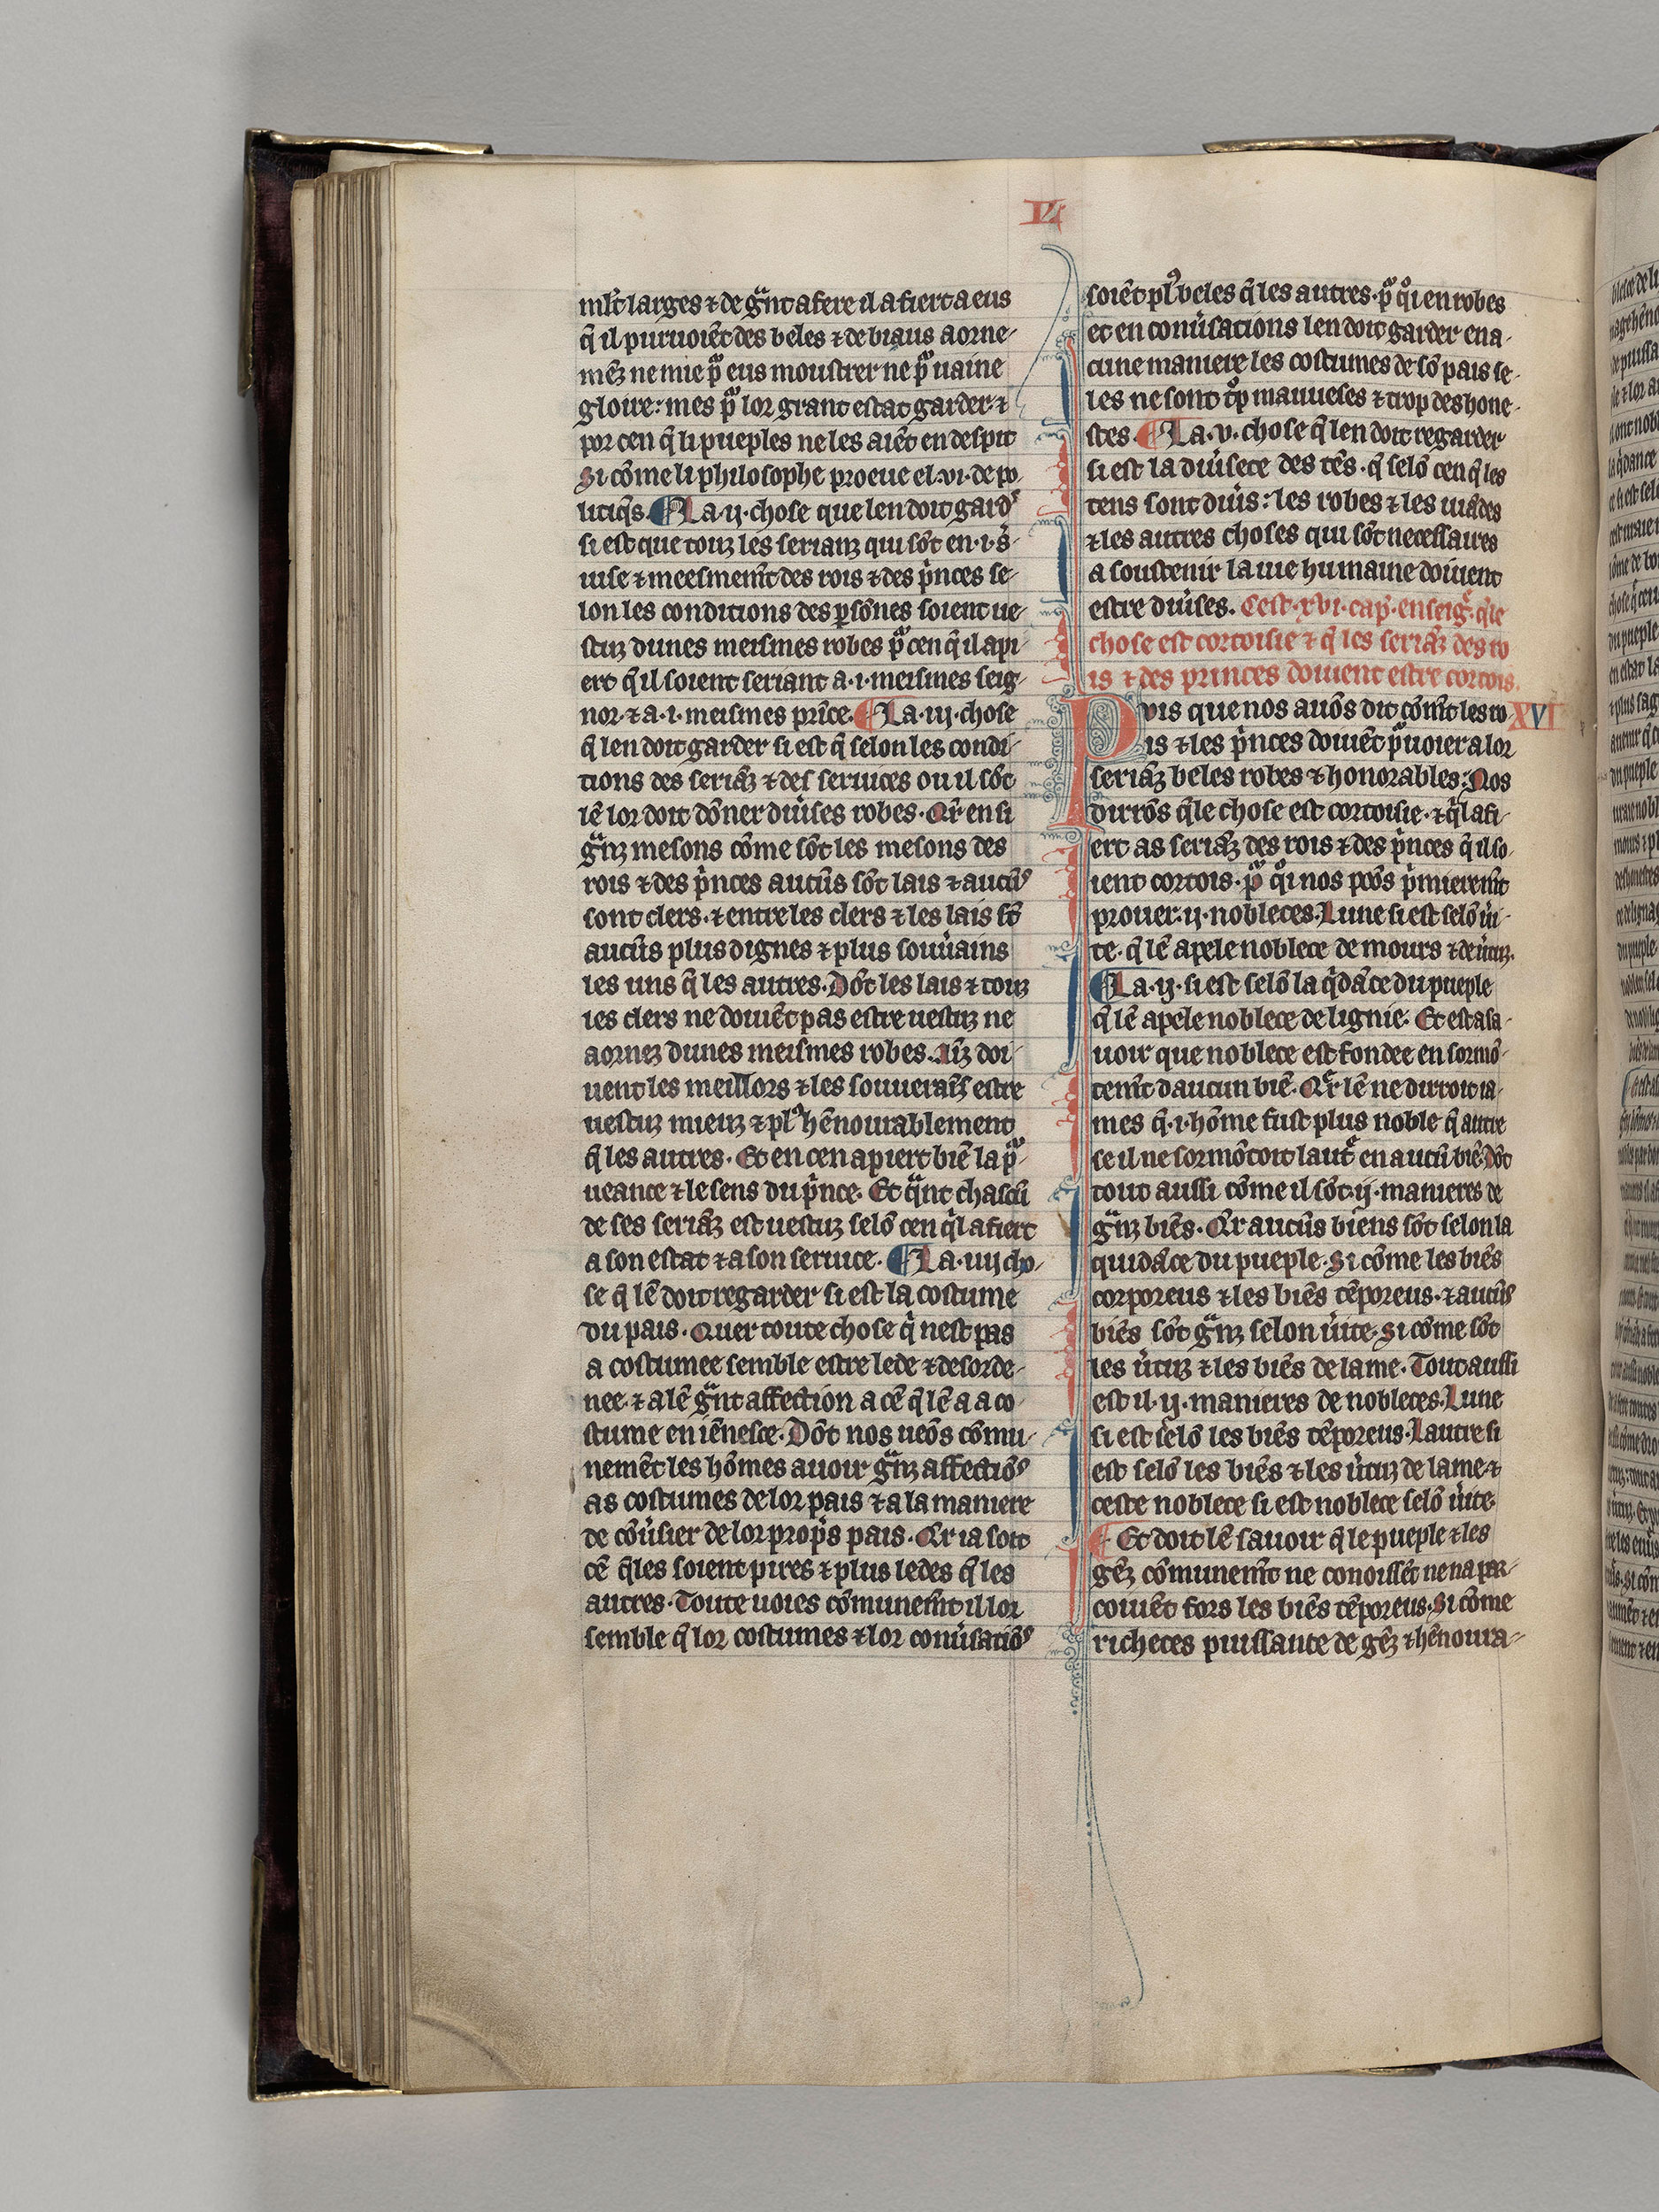 LI
ml't larges ⁊ de gͣnt afere il afiert a eus
q̄ il puruoiēt des beles ⁊ de biaus aorne-
mēz ne mie pͦ eus moustrer ne pͦ uaine
gloire: mes pͦ lor grant estat garder ⁊
por cen q̄ li pueples ne les aiēt en despit
Si cōme li philosophe proeue el .vi. de po
litiq̄s. La .ij. chose que len doit gard'
si est que touz les serianz qui sōt en .i. s'-
uise ⁊ meesmem̄t des rois ⁊ des p'nces se-
lon les conditions des ꝑsōnes soient ue-
stuz dunes meismes robes pͦ cen q̄ il api-
ert q̄ il soient seriant a .i. meismes seig-
nor. ⁊ a .i. meismes prīce. La .iij. chose
q̄ len doit garder si est q̄ selon les condi-
tions des seriāz ⁊ des seruices ou il sōt
lē lor doit dōner diu'ses robes. Qr̄ en si
gͣnz mesons cōme sōt les mesons des
rois ⁊ des p'nces aucūs sōt lais ⁊ aucūꝰ
sont clers. ⁊ entre les clers ⁊ les lais sōt
aucūs plus dignes ⁊ plus souu'ains
les uns q̄ les autres. Dōt les lais ⁊ touz
les clers ne doiuēt pas estre uestuz ne
aornez dunes meismes robes. Aīz doi-
uent les meillors ⁊ les souueraīs estre
uestuz mieuz ⁊ plꝰ hēnourablement
q̄ les autres. Et en cen apiert biē la pͦ-
ueance ⁊ le sens du p'nce. Et qͣnt chascū
de ses seriāz est uestuz selō cen q̄l afiert
a son estat ⁊ a son seruice. La .iiij. cho-
se q̄ lē doit regarder si est la costume
du pais. Quer toute chose q' nest pas
a costumee semble estre lede ⁊ desorde-
nee. ⁊ a lē gͣnt affection a cē q̄ lē a a co-
stume en iēnesce. Dōt nos ueōs cōmu-
nemēt les hōmes auoir gͣnz affectiōꝰ
as costumes de lor pais ⁊ a la maniere
de cōu'ser de lor prop̄s pais. Qr̄ ia soit
cē q̄les soient pires ⁊ plus ledes q̄ les
autres. Toute uoies cōmunem̄t il lor
semble q̄ lor costumes ⁊ lor conu'satiōꝰ
soiēt plꝰ beles q̄ les autres. pͦ qͦi en robes
et en conu'sations len doit garder en a-
cune maniere les costumes de sō pais se-
les ne sont tͦp mauueses ⁊ trop deshone-
stes. La .v. chose q̄ len doit regarder
si est la diu'sete des tēs. q̄ selō cen q̄ les
tens sont diu's: les robes ⁊ les uiādes
⁊ les autres choses qui sōt necessaires
a soustenir la uie humaine doiuent
estre diu'ses. Cest .xvi. cap'. enseig̃. q̄le
chose est cortoisie ⁊ q̄ les seriāz des ro
is ⁊ des princes doiuent estre cortois.
Puis que nos auōs dit cōm̄t les ro- XVI
is ⁊ les p'nces doiuēt pͦuoier a lor
seriāz beles robes ⁊ honorables: Nos
dirrōs q̄le chose est cortoisie. ⁊ q̄l afi-
ert as seriāz des rois ⁊ des p'nces q̄ il so-
ient cortois. pͦ qͦi nos poōs p'mierem̄t
prouer .ij. nobleces. Lune si est selō u'i-
te. q̄ lē apele noblece de mours ⁊ de u'tuz.
La .ij. si est selō la q'dāce du pueple
q̄ lē apele noblece de lignie. Et est a sa-
uoir que noblece est fondee en sormō-
tem̄t daucun biē. Qr̄ lē ne dirroit ia-
mes q̄ .i. hōme fust plus noble q̄ autre
se il ne sormōtoit laut̄ en aucū biē. Dōt
tout aussi cōme il sōt .ij. manieres de
gͣnz biēs. Qr̄ aucūs biens sōt selon la
quidāce du pueple. Si cōme les biēs
corporeus ⁊ les biēs tēporeus. ⁊ aucūꝰ
biēs sōt gͣnz selon u'ite. Si cōme sōt
les u'tuz ⁊ les biēs de lame. Tout aussi
est il .ij. manieres de nobleces. Lune
si est selō les biēs tēporeus. Lautre si
est selō les biēs ⁊ les u'tuz de lame. ⁊
ceste noblece si est noblece selō u'ite.
Et doit lē sauoir q̄ le pueple ⁊ les
gēz cōmunem̄t ne conoissēt ne na per-
coiuēt fors les biēs tēporeus. Si cōme
richeces puissante de gēz ⁊ hēnoura-